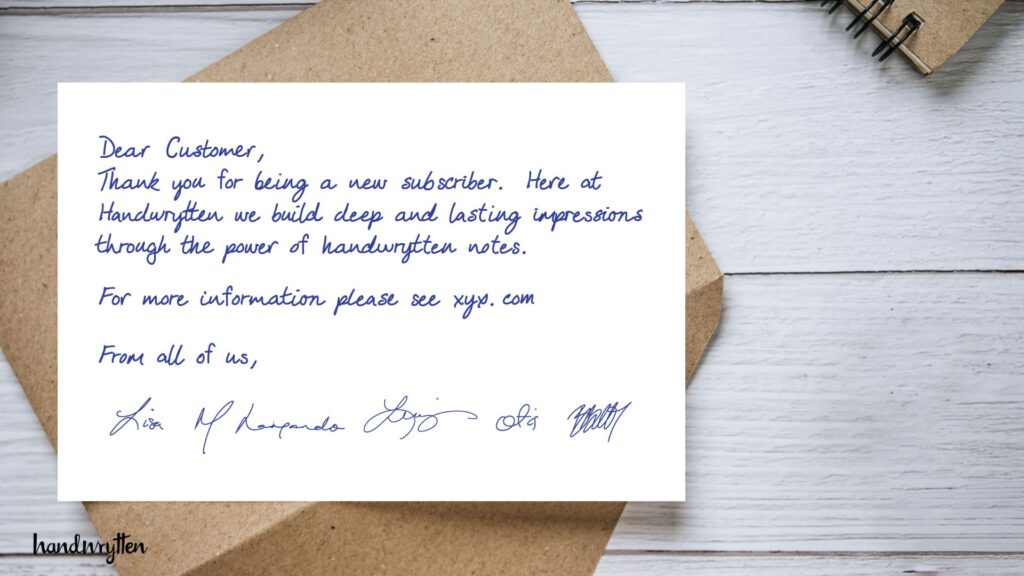 Dear Customer,
Thank you for being a new subscriber. Here at
Handwrytten we build deep and lasting impressions
through the power of handwrytten notes.
For more information please see xyx.com
From all of us,
Lisa
handwrytten